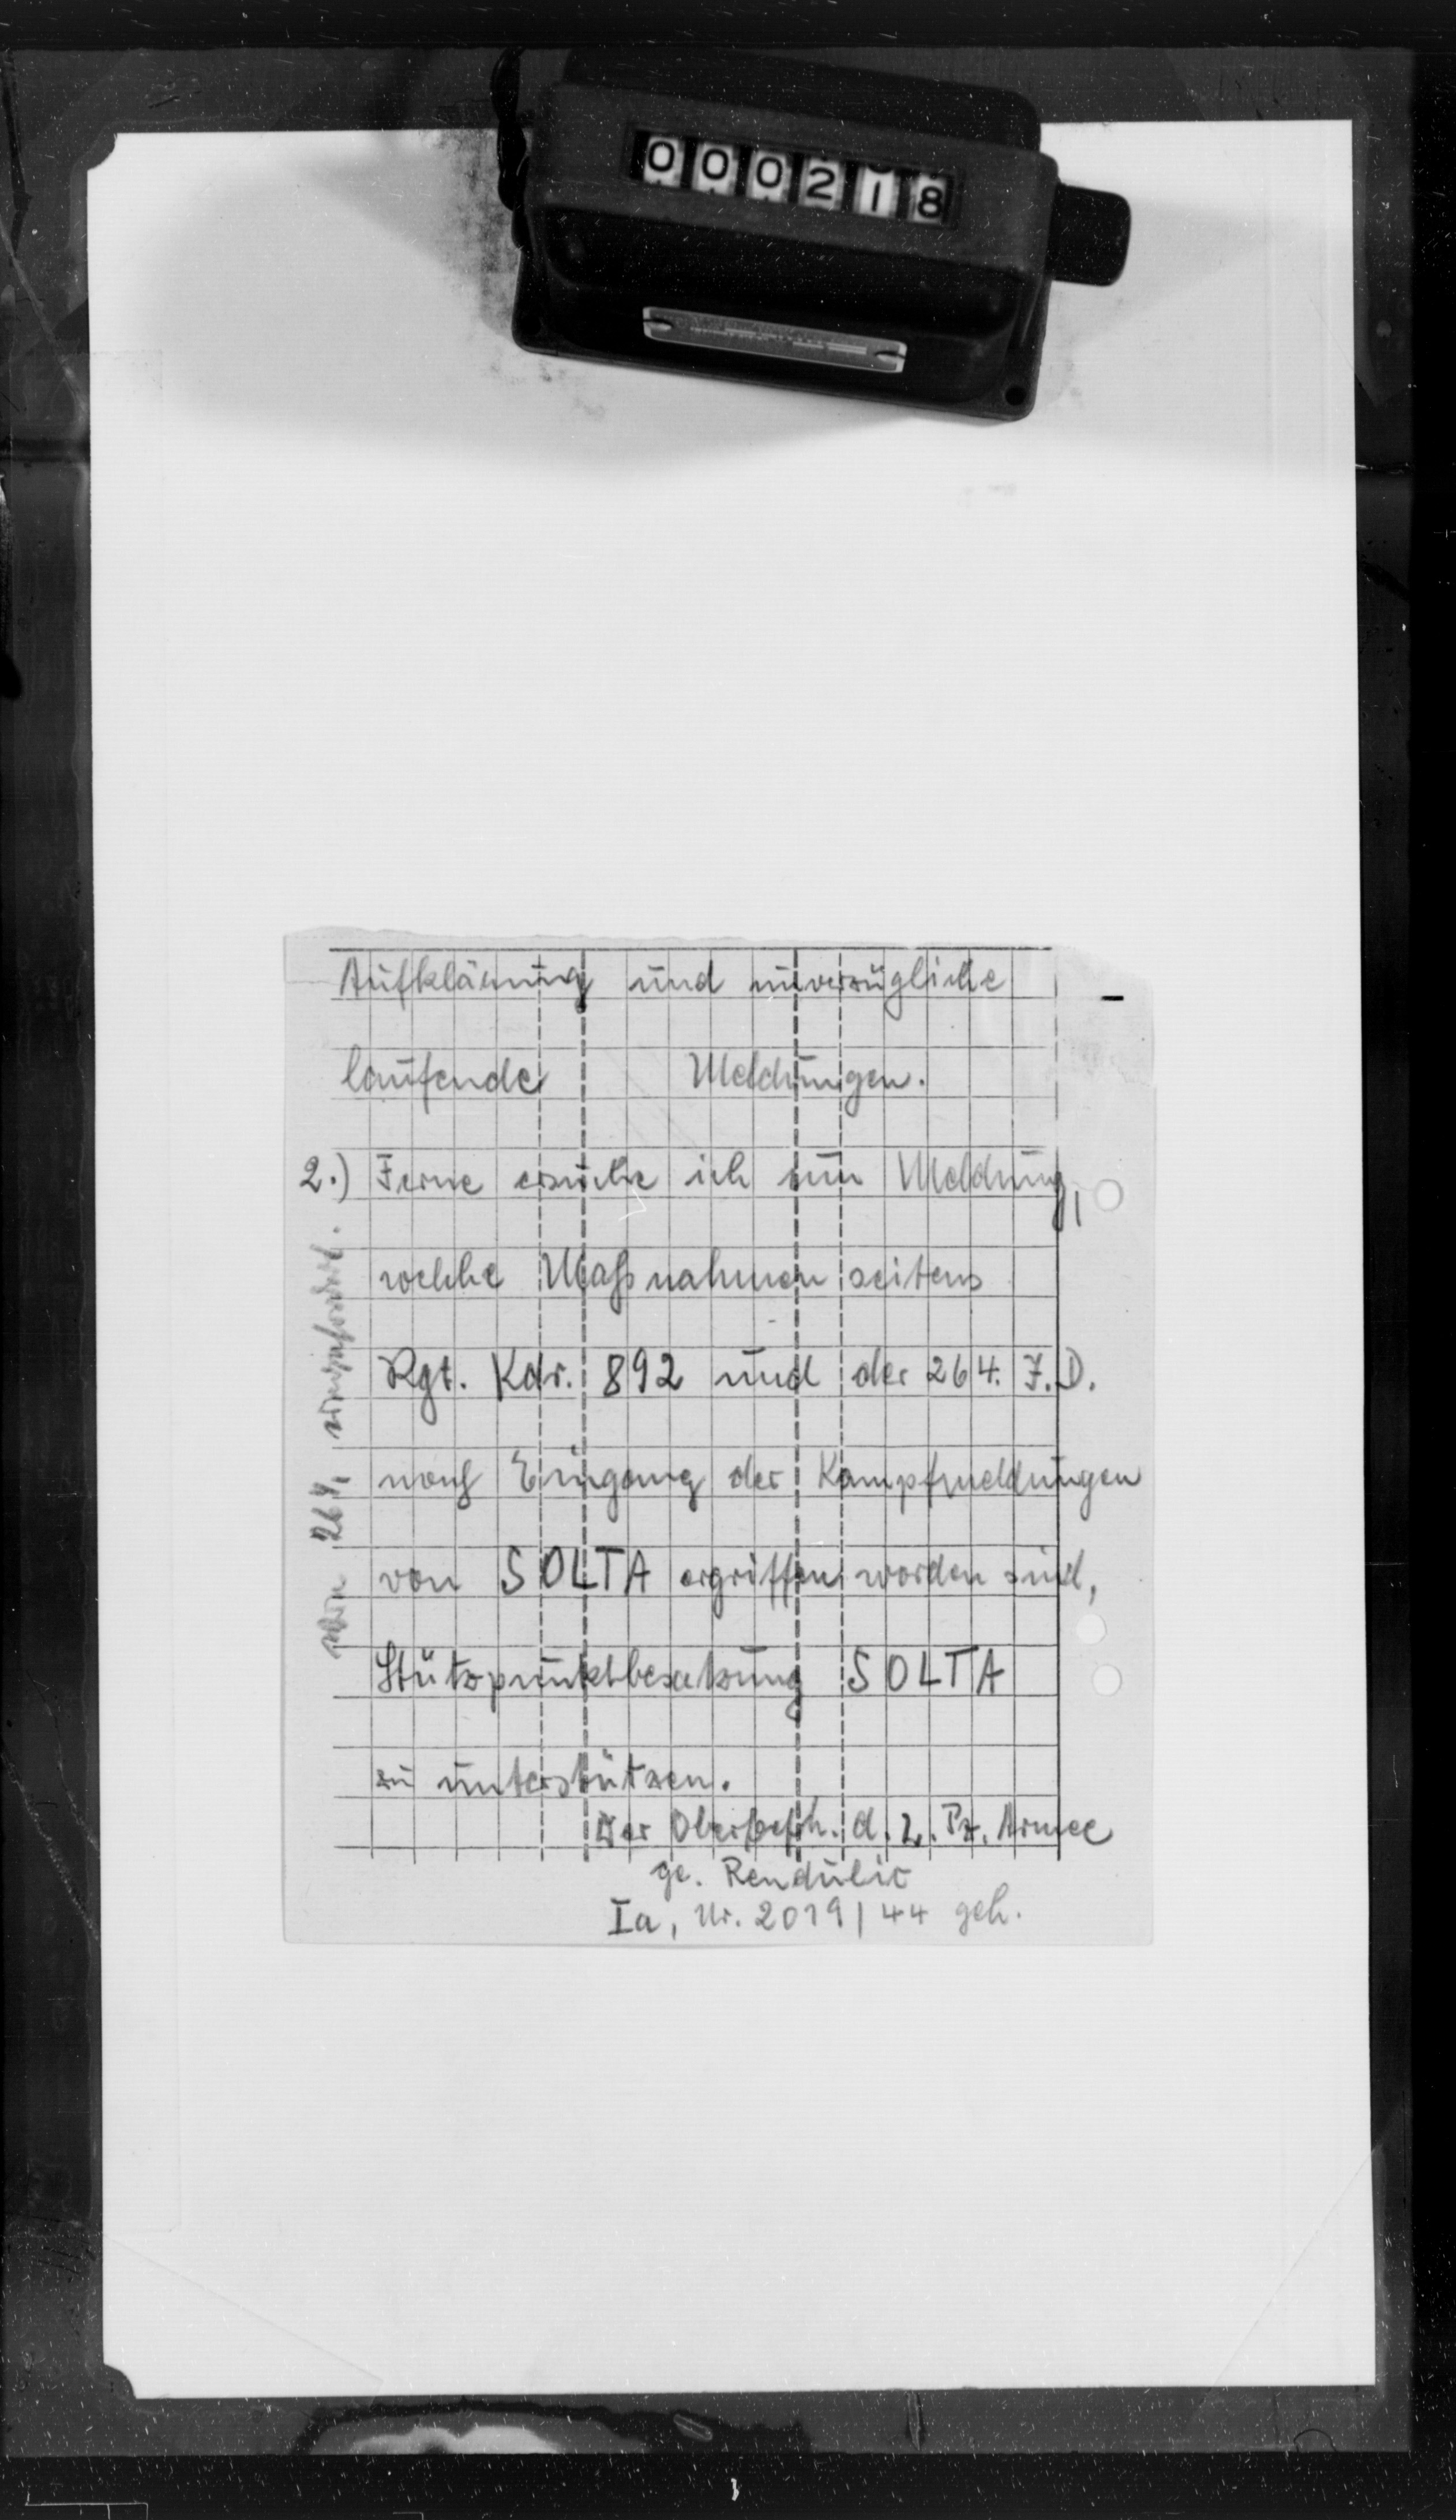 000218
Aufklärung und unverzügliche
laufende Meldungen.
2.) Ferne ersuche ich um Meldung,
welche Maßnahmen seitens
Rgt. Kdr. 892 und der 264. I.D.
nach Eingang der Kampfmeldungen
von SOLTA ergriffen worden sind,
Stützpunktbesatzung SOLTA
zu unterstützen.
Der Oberbefh. d. 2. Pz. Armee
gez. Rendulic
Ia, Nr. 2019/44 geh.
von 264.